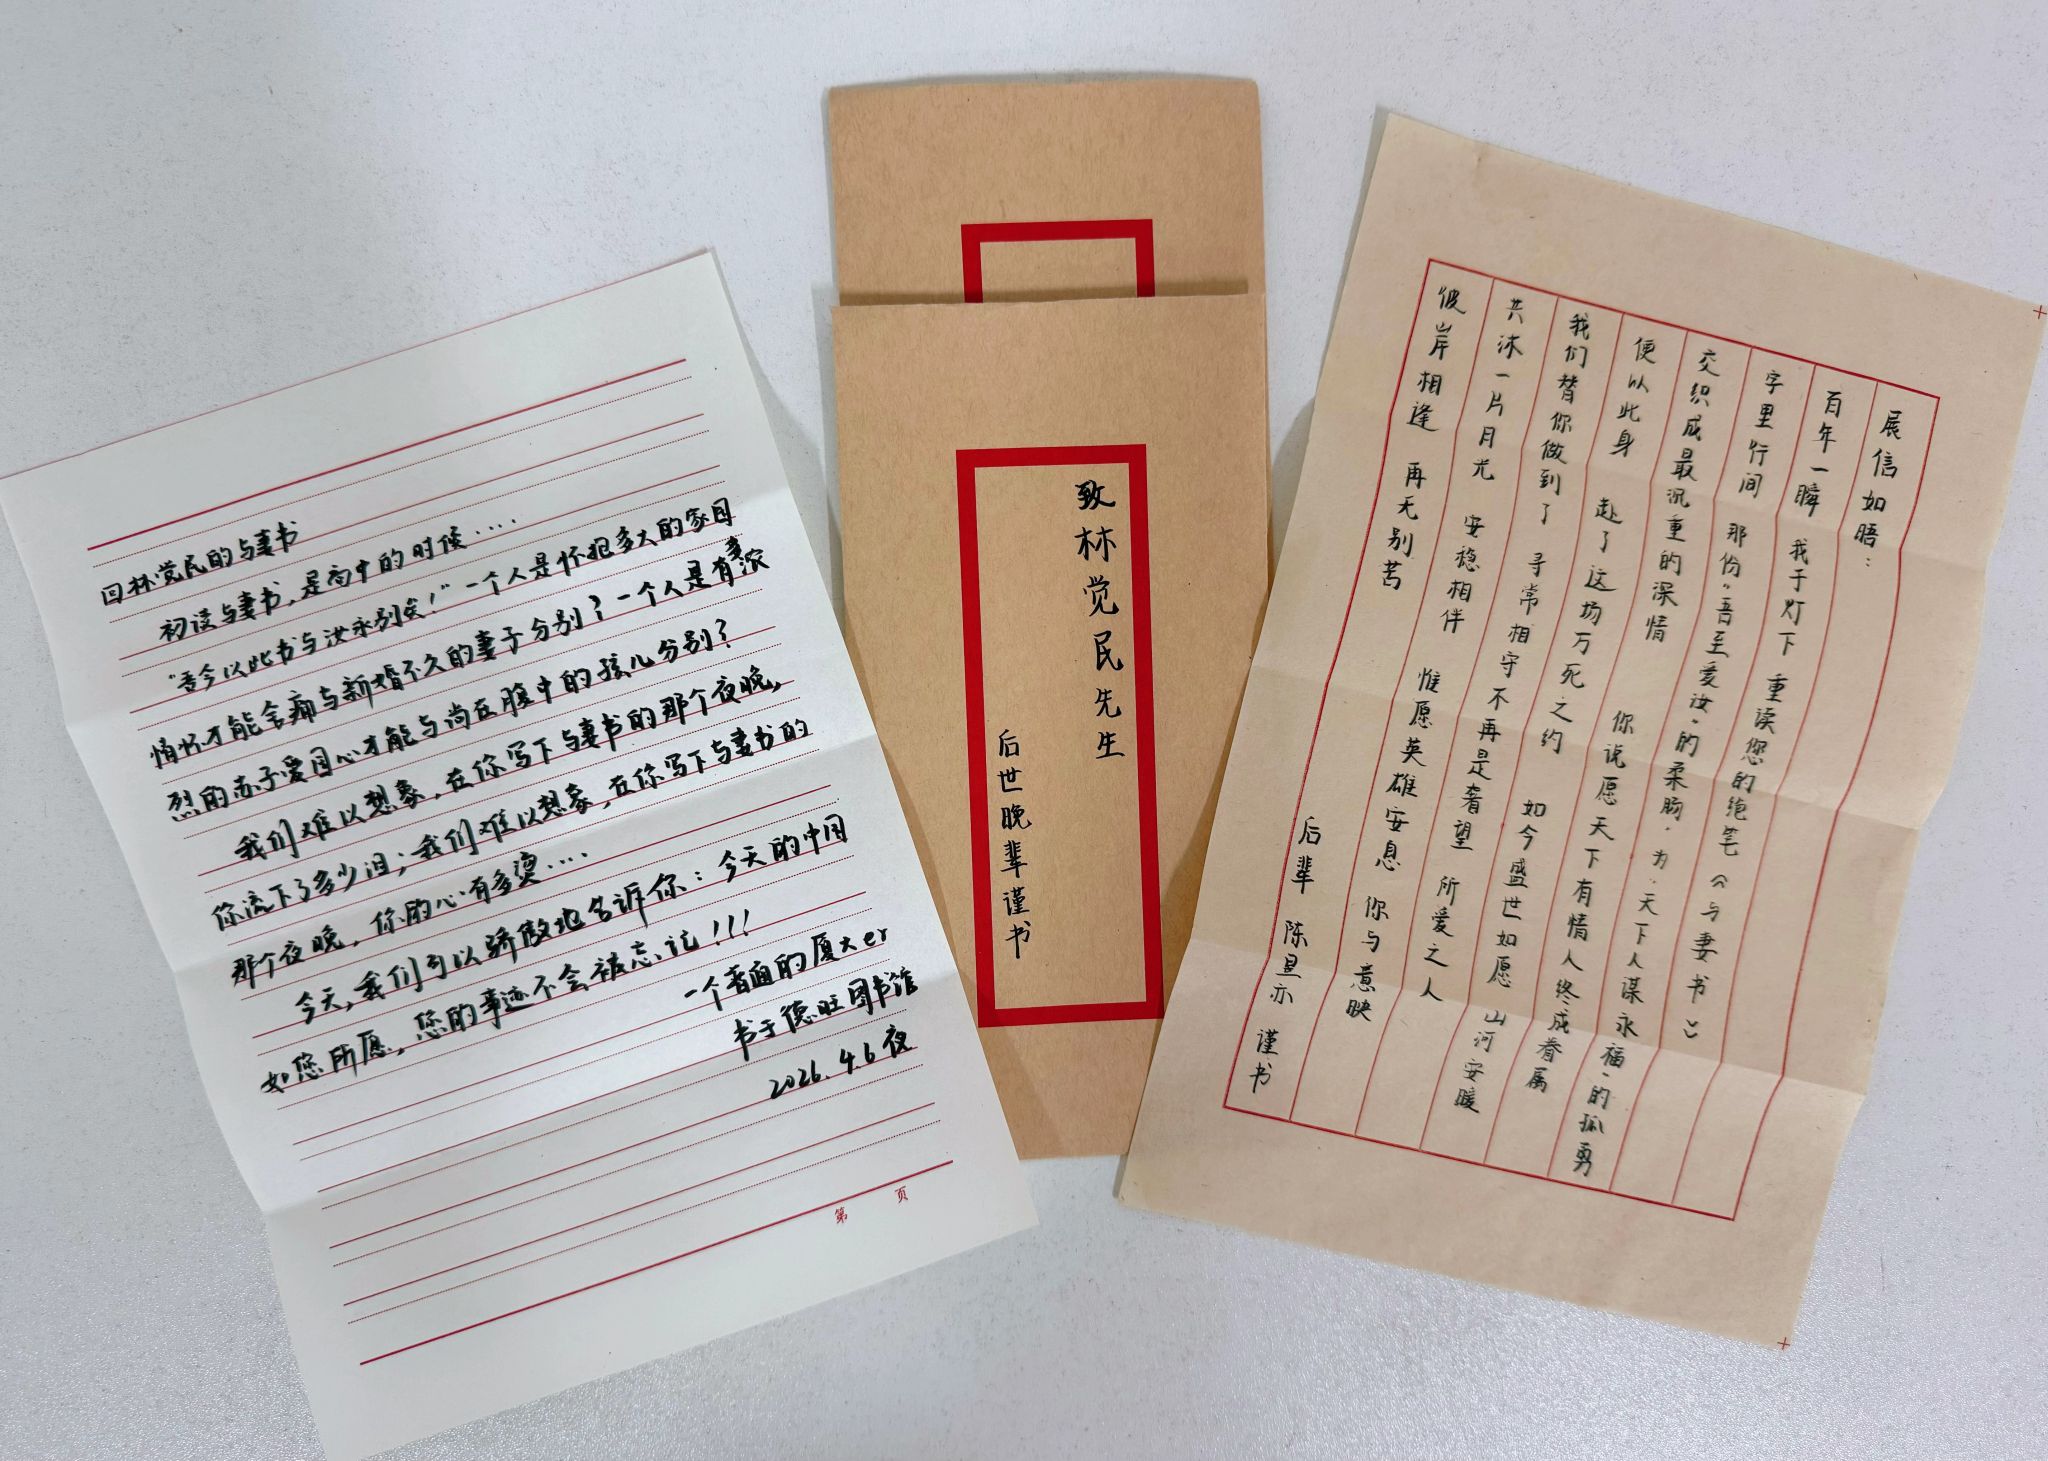 回林觉民的与妻书
初读与妻书，是高中的时候....
“吾今以此书与汝永别矣！”一个人是怀抱多大的家国
情怀才能舍痛与新婚不久的妻子分别？一个人是有着浓
烈的赤子爱国心才能与尚在腹中的孩儿分别？
我们难以想象，在你写下与妻书的那个夜晚，
你流下了多少泪；我们难以想象，在你写下与妻书的
那个夜晚，你的心有多烫....
今天，我们可以骄傲地告诉你：今天的中国
如您所愿，您的事迹不会被忘记！！！
一个普通的厦大er
书于德旺图书馆
2026.4.6夜
第 页
致林觉民先生
后世晚辈谨书
展信如晤：
百年一瞬 我于灯下 重读您的绝笔《与妻书》
字里行间 那份“吾至爱汝”的柔肠，为“天下人谋永福”的孤勇
交织成最沉重的深情 你说愿天下有情人终成眷属
便以此身 赴了这场万死之约 如今盛世如愿 山河安暖
我们替你做到了 寻常相守不再是奢望 所爱之人
共沐一片月光 安稳相伴 惟愿英雄安息 你与意映
彼岸相逢 再无别苦
后辈 陈昱亦 谨书